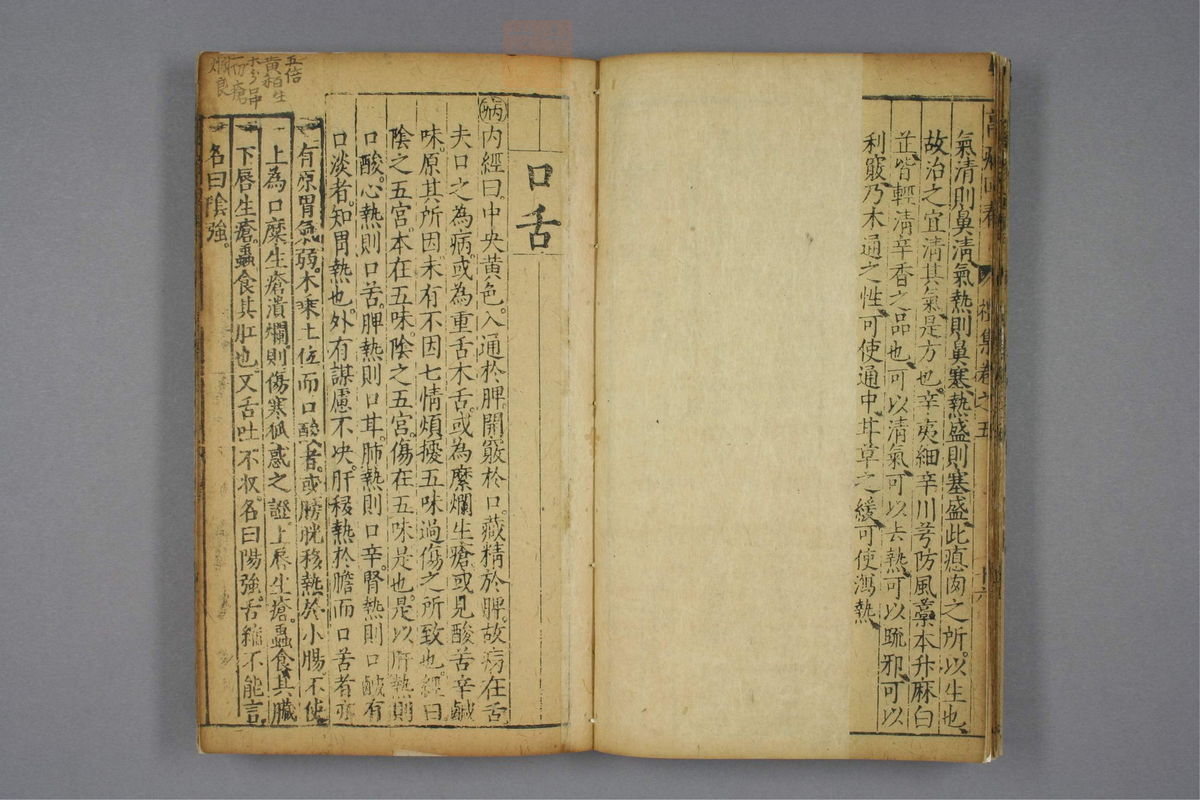 氣清則鼻清氣熱則鼻塞熱盛則塞盛此瘜肉之所以生也
故治之宜清其氣是方也辛夷細辛川芎防風藁本升麻白
芷皆輕清辛香之品也可以清氣可以去熱可以疏邪可以
利竅乃木通之性可使通中甘草之緩可使瀉熱
口舌
病內經曰中央黃色入通於脾開竅於口藏精於脾故病在舌
夫口之為病或為重舌木舌或為糜爛生瘡或見酸苦辛鹹
味原其所因未有不因七情煩擾五味過傷之所致也經曰
陰之五宮本在五味陰之五宮傷在五味是也是以肝熱則
口酸心熱則口苦脾熱則口甘肺熱則口辛腎熱則口鹹有
口淡者知胃熱也外有謀慮不决肝移熱於膽而口苦者亦
有原胃氣弱木乘土位而口酸者或膀胱移熱於小腸不使
上為口糜生瘡潰爛則傷寒狐惑之證上唇生瘡蟲食其臟
下唇生瘡蟲食其肛也又舌吐不收名曰陽強舌縮不能言
名曰陰強
五倍
黃柏生